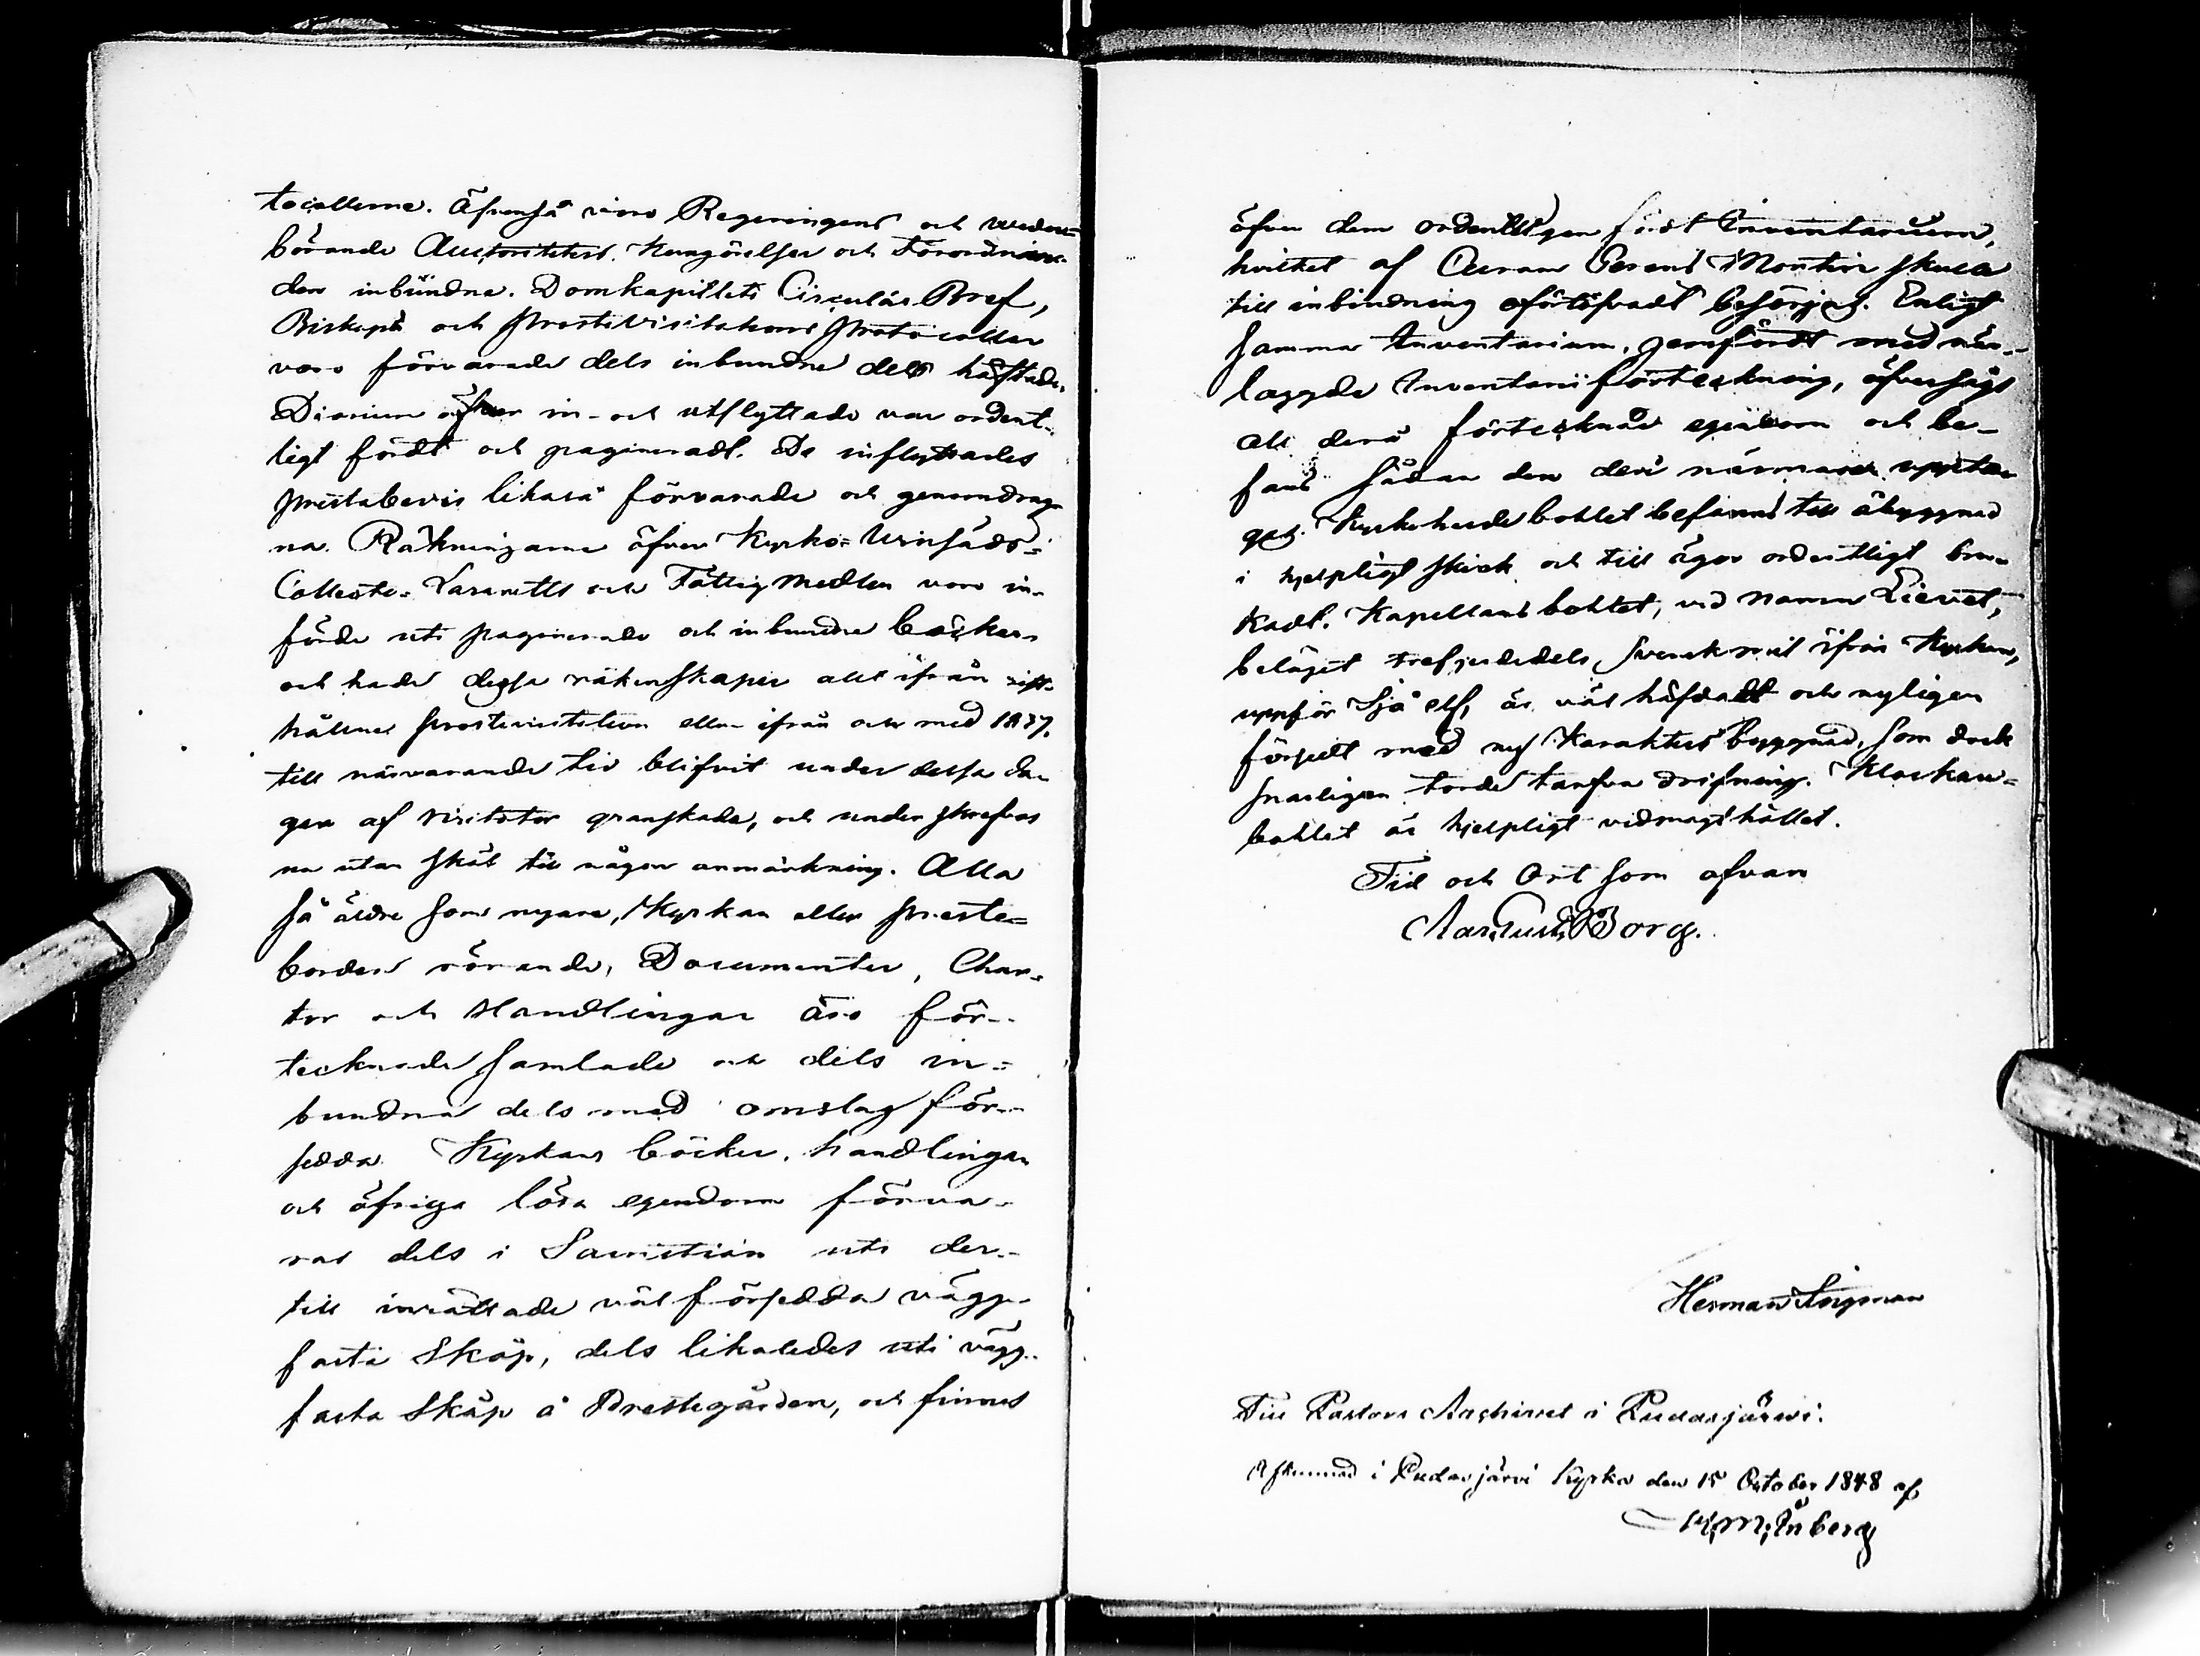 tocollerne. Äfvenså voro Regeringens och veder-
börande Auctoriteters Kungörelser och Förordnin-
der inbundne. Domkapitlets Circulär Bref,
Biskops och Prostevisitations Protocoller
voro förvarade dels inbundne dels häftade.
Diarium öfver in- och utflyttade var ordent-
ligt fördt och pagineradt. De inflyttades
prestabevis likaså förvarade och genomdrag-
na. Räkningarne öfver Kyrko- Winsäds-
Collecte- Lazaretts och Fattigmedlen voro in-
förde uti paginerade och inbundne böcker
och hade dessa räkenskaper allt ifrån sist-
hållne prostevisitation eller ifrån och med 1837,
till närvarande tid blifvit under dessa da-
gar af visitator granskade, och underskrefvos
nu utan skäl till någon anmärkning. Alla
så äldre som nyare, Kyrkan eller preste-
bordet rörande, Documenter, Char-
tor och Handlingar äro för-
tecknade samlade och dels in-
bundna dels med omslag för-
sedda. Kyrkans böcker, handlingar
och öfriga lösa egendom förva-
ras dels i Sacristian uti der-
till inrättade väl försedda vägg-
fasta skåp, dels likaledes uti vägg-
fasta skåp å Prestegården, och finnes
öfver dem ordentligen fördt Inventarium,
hvilket af Curam Gerens Montin skulle
till inbindning ofördröjadt besörjas. Enligt
samma Inventarium, jemfördt med när-
laggde Inventarii förteckning, öfversågs
all derå förtecknad egendom och be-
fans sådan den deri närmare uppta-
ges. Kyrkoherdebohlet befanns till åbyggnad
i hjelpligt skick och till ägor ordentligt bru-
kadt. Kapellansbohlet, vid namn
beläget trefjerdedels Svensk mil ifrån Kyrkan,
uppför Sjö elf, är väl häfdadt och nyligen
försedt med ny Karakters byggnad, som dock
snarligen torde tarfva drifning. Klockare-
bohlet är hjelpligt vidmagthållet.
Tid och Ort som ofvan
Aar. Gust. Borg.
Herman
Till Pastors Archivet i Pudasjärvi.
i Pudasjärvi Kyrka den 15 October 1848 af